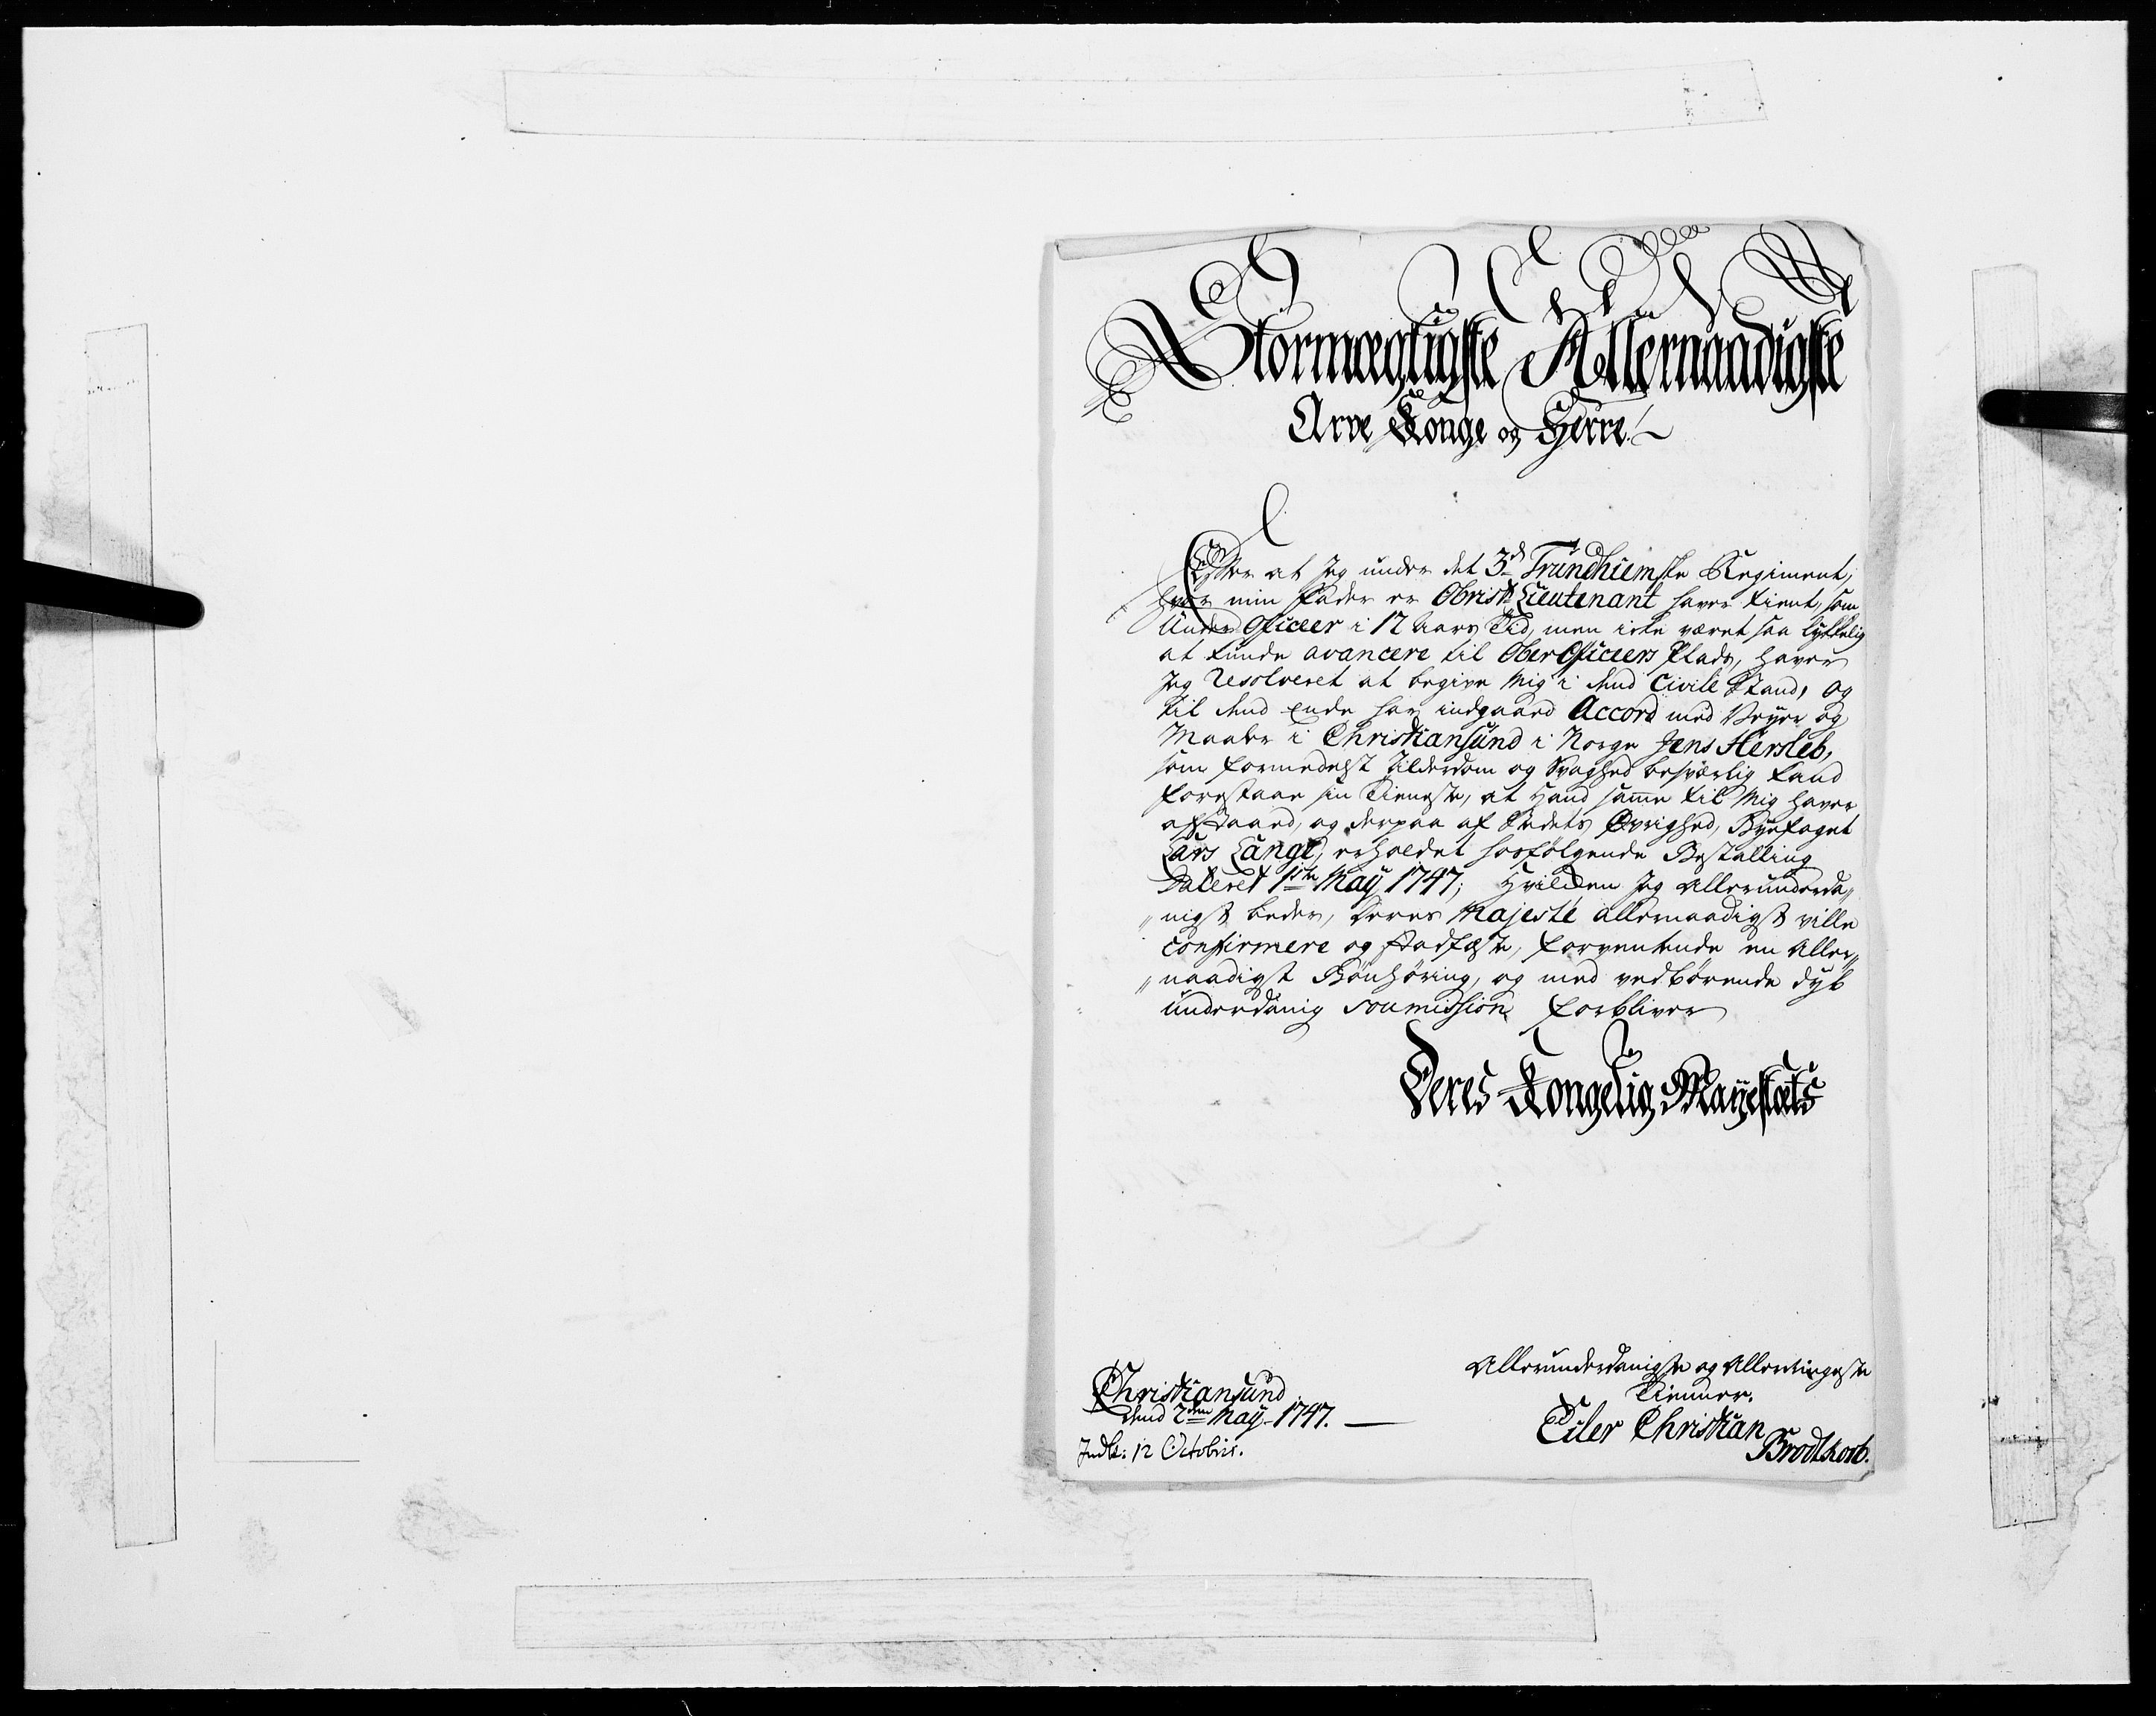 Stormægtigste Allernaadigste
Arve Konge og Herre!
Efter at Jeg under det 3d Trundhiemske Regiment,
hvor min Fader er Obrist Lieutenant haver tient, som
Under Officeer i 12 Aars Tid, men icke været saa lykkelig
at kunde avancere til Ober Officeers Plads, haver
Jeg Resolveret at begive Mig i dend Civile Stand, og
til dend Ende har indgaaed Accord med Veyer og
Maaler i Christiansund i Norge Jens Hersleb,
som formedelst Alderdom og Svaghed besværlig kand
forestaae sin Tieneste, at Hand samme til Mig haver
afstaaed, og derpaa af Stedets Øvrighed, Byefoget
Lars Lange, erholdet hosfølgende Bestalling
Dateret 1ste May 1747; Hvilcken Jeg Allerunderda„
„nigst beder, Deres Majesté allernaadigst ville
confirmere og stadfæste, forventende en Aller„
„naadigst Bønhøring, og med vedbørende dyb
underdanig soumission forbliver
Deres Kongelig Mayestæts
Allerunderdanigste og Allerringeste
Tienner.
Christiansund
dend 2den May 1747.
Eiler Christian
Brodtkorb.
Indk: 12 Octobris.